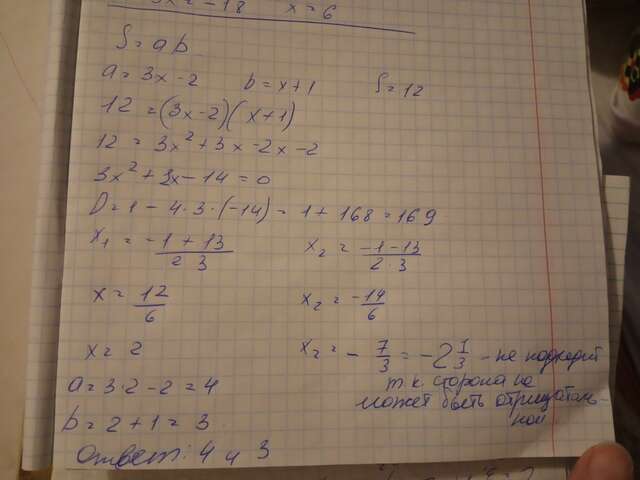 3x = -18 x = 6
S = ab
a = 3x - 2 b = x+1 S = 12
12 = (3x-2)(x+1)
12 = 3x² + 3x - 2x - 2
3x² + 3x - 14 = 0
D = 1 - 4·3·(-14) = 1 + 168 = 169
x₁ = -1+13 / 2 3 x₂ = -1-13 / 2·3
x = 12/6 x₂ = -14/6
x = 2 x₂ = - 7/3 = -2 1/3 - не подходит
a = 3·2 - 2 = 4 т.к. сторона не
может быть отрицатель-
ной
b = 2 + 1 = 3
Ответ: 4 и 3